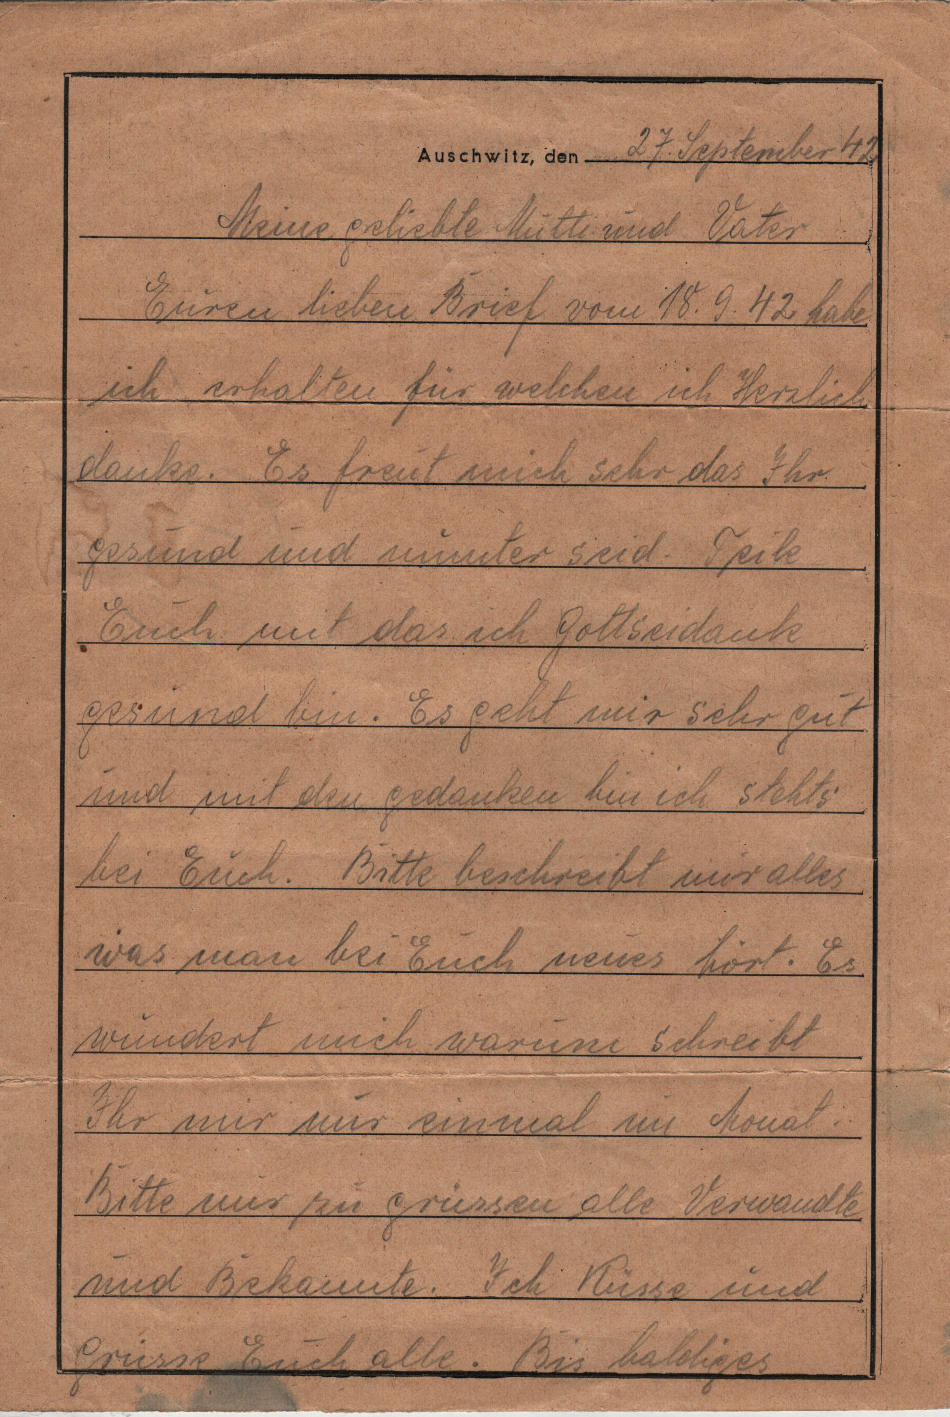 Auschwitz, den 27. September 42
Meine geliebte Mutti und Vater
Euren lieben Brief vom 18. 9. 42 habe
ich erhalten für welchen ich Herzlich
danke. Es freut mich sehr das Ihr
gesund und munter seid. Teile
Euch mit das ich Gottseidank
gesund bin. Es geht mir sehr gut
und mit den gedanken bin ich stehts
bei Euch. Bitte beschreibt mir alles
was man bei Euch neues hört. Es
wundert mich warum schreibt
Ihr mir nur einmal im Monat.
Bitte mir zu grüssen alle Verwandte
und Bekannte. Ich Küsse und
Grüsse Euch alle. Bis baldiges